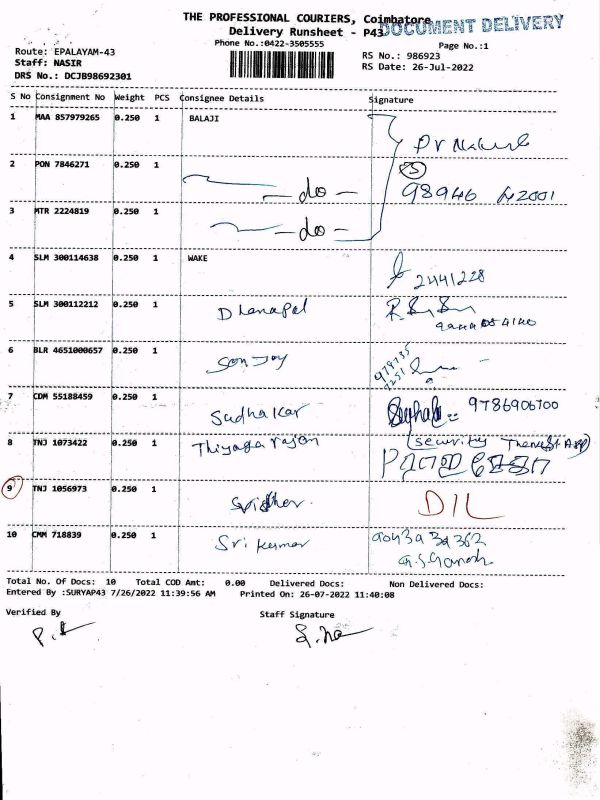 THE PROFESSIONAL COURIERS, Coimbatore
DOCUMENT DELIVERY
Delivery Runsheet - P43
Phone No.:0422-3505555
Page No.:1
Route: EPALAYAM-43
RS No.: 986923
Staff: NASIR
RS Date: 26-Jul-2022
DRS No.: DCJB98692301
S No Consignment No Weight PCS Consignee Details Signature
1 MAA 857979265 0.250 1 BALAJI
2 PON 7846271 0.250 1 - do - 98946 42001
3 MTR 2224819 0.250 1 - do -
4 SLM 300114638 0.250 1 WAKE 2441228
5 SLM 300112212 0.250 1 Dhanapal
6 BLR 4651000657 0.250 1 Sonjoy
7 CDM 55188459 0.250 1 Sudhakar 9786906700
8 TNJ 1073422 0.250 1 Thiyagarajan (Security
9 TNJ 1056973 0.250 1 Sridhar DIL
10 CMM 718839 0.250 1 Sri Kumar
Total No. Of Docs: 10 Total COD Amt: 0.00 Delivered Docs: Non Delivered Docs:
Entered By :SURYAP43 7/26/2022 11:39:56 AM Printed On: 26-07-2022 11:40:08
Verified By Staff Signature